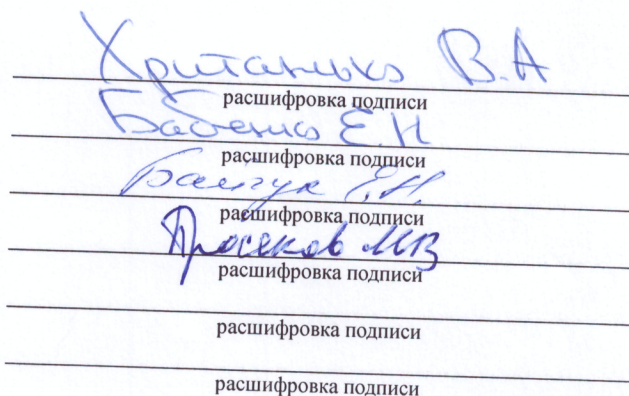 Хританько В.А
расшифровка подписи
Бабенко Е.Н
расшифровка подписи
Е.Н.
расшифровка подписи
Просеков МВ
расшифровка подписи
расшифровка подписи
расшифровка подписи